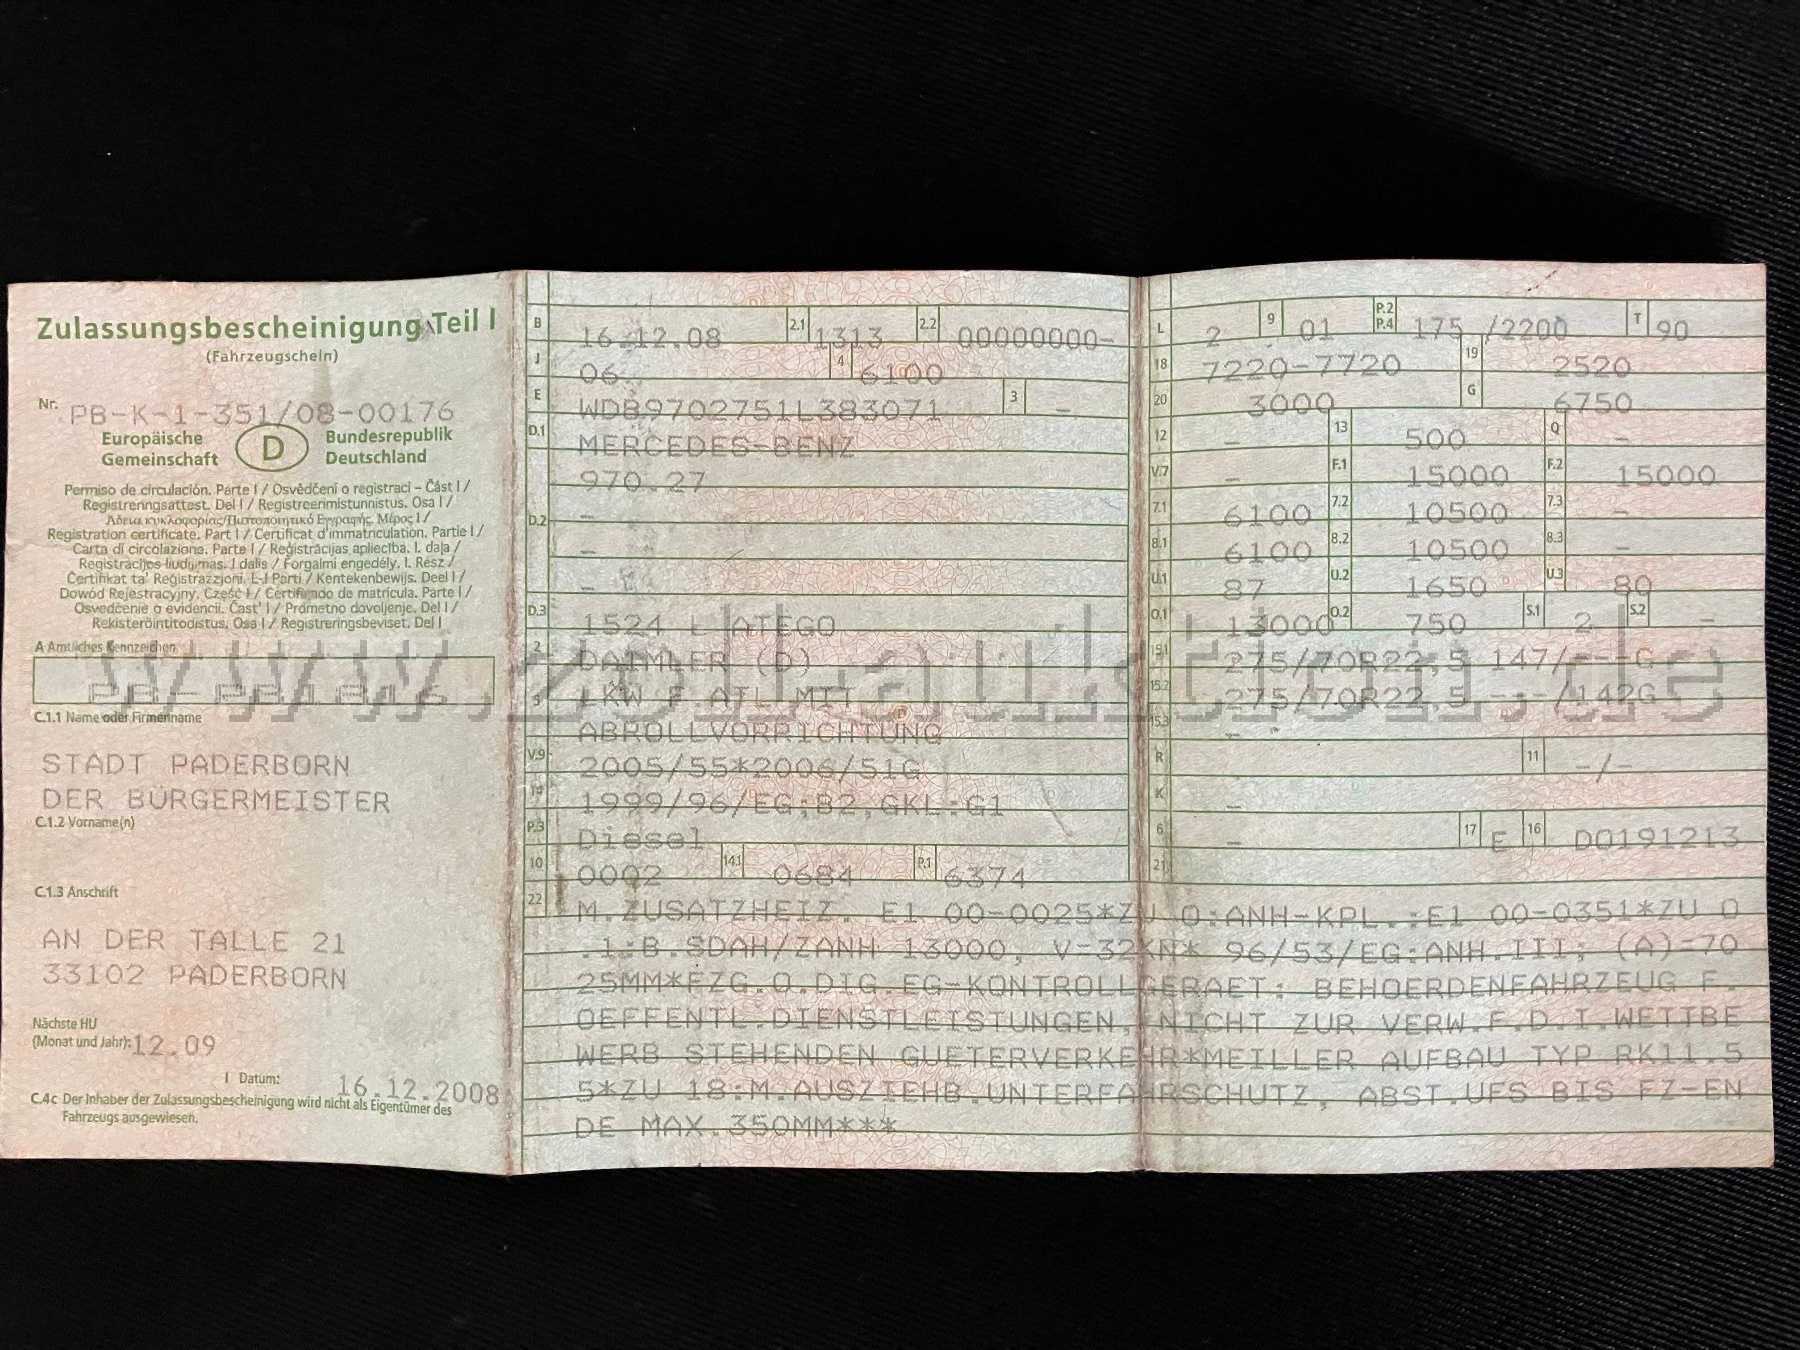 Zulassungsbescheinigung Teil I
(Fahrzeugschein)
Nr. PB-K-1-351/08-00176
Europäische Gemeinschaft
D
Bundesrepublik Deutschland
Permiso de circulación. Parte I / Osvědčení o registraci – Část I /
Registreringsattest. Del I / Registreerimistunnistus. Osa I /
Άδεια κυκλοφορίας/Πιστοποιητικό Εγγραφής. Μέρος I /
Registration certificate. Part I / Certificat d'immatriculation. Partie I /
Carta di circolazione. Parte I / Reģistrācijas apliecība. I. daļa /
Registracijos liudijimas. I dalis / Forgalmi engedély. I. Rész /
Ċertifikat ta' Reġistrazzjoni. L-I Parti / Kentekenbewijs. Deel I /
Dowód Rejestracyjny. Część I / Certificado de matrícula. Parte I /
Osvedčenie o evidencii. Časť I / Prometno dovoljenje. Del I /
Rekisteröintitodistus. Osa I / Registreringsbeviset. Del I
A Amtliches Kennzeichen
C.1.1 Name oder Firmenname
STADT PADERBORN
DER BÜRGERMEISTER
C.1.2 Vorname(n)
C.1.3 Anschrift
AN DER TALLE 21
33102 PADERBORN
Nächste HU
(Monat und Jahr): 12.09
I Datum: 16.12.2008
C.4c Der Inhaber der Zulassungsbescheinigung wird nicht als Eigentümer des
Fahrzeugs ausgewiesen.
B 16.12.08 2.1 1313 2.2 00000000-
J 06 4 6100
E WDB9702751L383071 3 -
D.1 MERCEDES-BENZ
970.27
D.2 -
-
-
D.3 1524 L ATEGO
2 DAIMLER (D)
5 LKW F ATL MIT
ABROLLVORRICHTUNG
V.9 2005/55*2006/51G
14 1999/96/EG;B2,GKL:G1
P.3 Diesel
10 0002 14.1 0684 P.1 6374
L 2 9 01 P.2 P.4 175 /2200 T 90
18 7220-7720 19 2520
20 3000 G 6750
12 - 13 500 Q -
V.7 - F.1 15000 F.2 15000
7.1 6100 7.2 10500 7.3 -
8.1 6100 8.2 10500 8.3 -
U.1 87 U.2 1650 U.3 80
O.1 13000 O.2 750 S.1 2 S.2 -
15.1 275/70R22,5 147/---G
15.2 275/70R22,5 ---/142G
15.3 -
R 11 -/-
K -
6 - 17 E 16 DO191213
21
22 M.ZUSATZHEIZ. E1 00-0025*ZU O:ANH-KPL.:E1 00-0351*ZU O
.1:B.SDAH/ZANH 13000, V-32KN* 96/53/EG:ANH.III; (A)=70
25MM*FZG.O.DIG.EG-KONTROLLGERAET: BEHOERDENFAHRZEUG F.
OEFFENTL.DIENSTLEISTUNGEN, NICHT ZUR VERW.F.D.I WETTBE
WERB STEHENDEN GUETERVERKEHR*MEILLER AUFBAU TYP RK11.5
5*ZU 18:M.AUSZIEHB.UNTERFAHRSCHUTZ, ABST.UFS BIS FZ-EN
DE MAX.350MM***
www.zoll-auktion.de